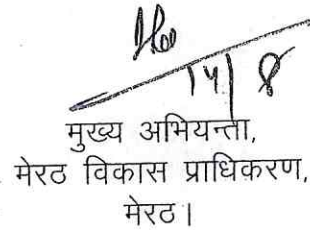 14/8
मुख्य अभियन्ता,
मेरठ विकास प्राधिकरण,
मेरठ।